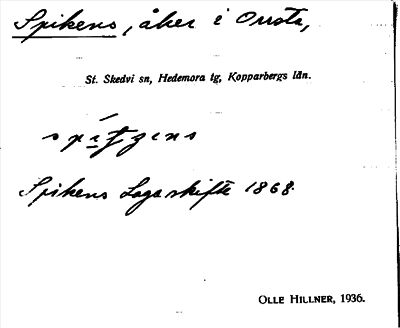 Spikens, åker i Orrsta,
St. Skedvi sn, Hedemora tg, Kopparbergs län.
Spikens Laga skifte 1868.
OLLE HILLNER, 1936.